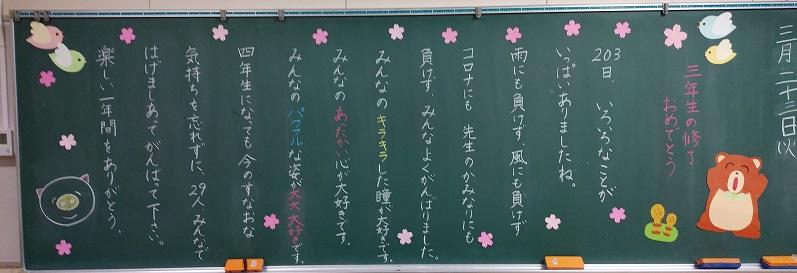 三月二十三日(火)
三年生の修了
おめでとう
203日、いろいろなことが
いっぱいありましたね。
雨にも負けず、風にも負けず
コロナにも 先生のかみなりにも
負けず みんなよくがんばりました。
みんなの キラキラした瞳が大好きです。
みんなの あたたかい心が大好きです。
みんなの パワフルな姿が大大大好きです。
四年生になっても 今のすなおな
気持ちを忘れずに、29人みんなで
はげましあってがんばって下さい。
楽しい一年間をありがとう。